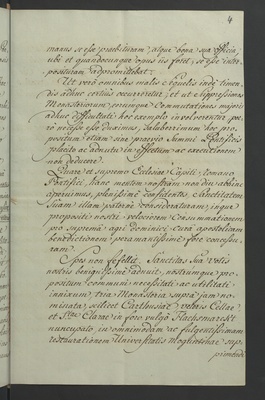 4
manus se esse praebituram, atque bona sua officia,
ubi et quandocunque opus iis foret, se esse inter-
posituram adpromittebat.
Ut vero omnibus malis et querelis indi timen-
dis adhuc certius occurreretur, et ut suppressionis
Monasteriorum, rerumque Commutationes majori
adhuc difficultati hoc exemplo involverentur, pe-
ro necesse esse duximus, saluberrimum hoc pro-
positum etiam sine praevio Summi Pontificis
placito ac adnutu in effectum ac executionem
non deducere.
Quare et supremo Ecclesiae Capiti, romano
Pontifici, hanc mentem nostram non diu abhinc
aperuimus, plane confidentes Sanctitatem
Suam illam paterne consideraturam, inque
propositi nostri velociorem consummationem
pro suprema agri dominici cura apostolicam
benedictionem peramantissime fore concessu-
ram.
Spes non fefellit, Sanctitas Sua votis
nostris benignissime adnuit, nostrumque pro-
positum communi necessitate ac utilitati
innixum, tria Monasteria supra jam no-
minata, scilicet Carthusiae, veteris Cellae
et Stae Clarae in foro vulgo Flachsmarckt
nuncupato in omnimodam ac fulgentissimam
restaurationem Universitatis Moguntinae sup-
primendi